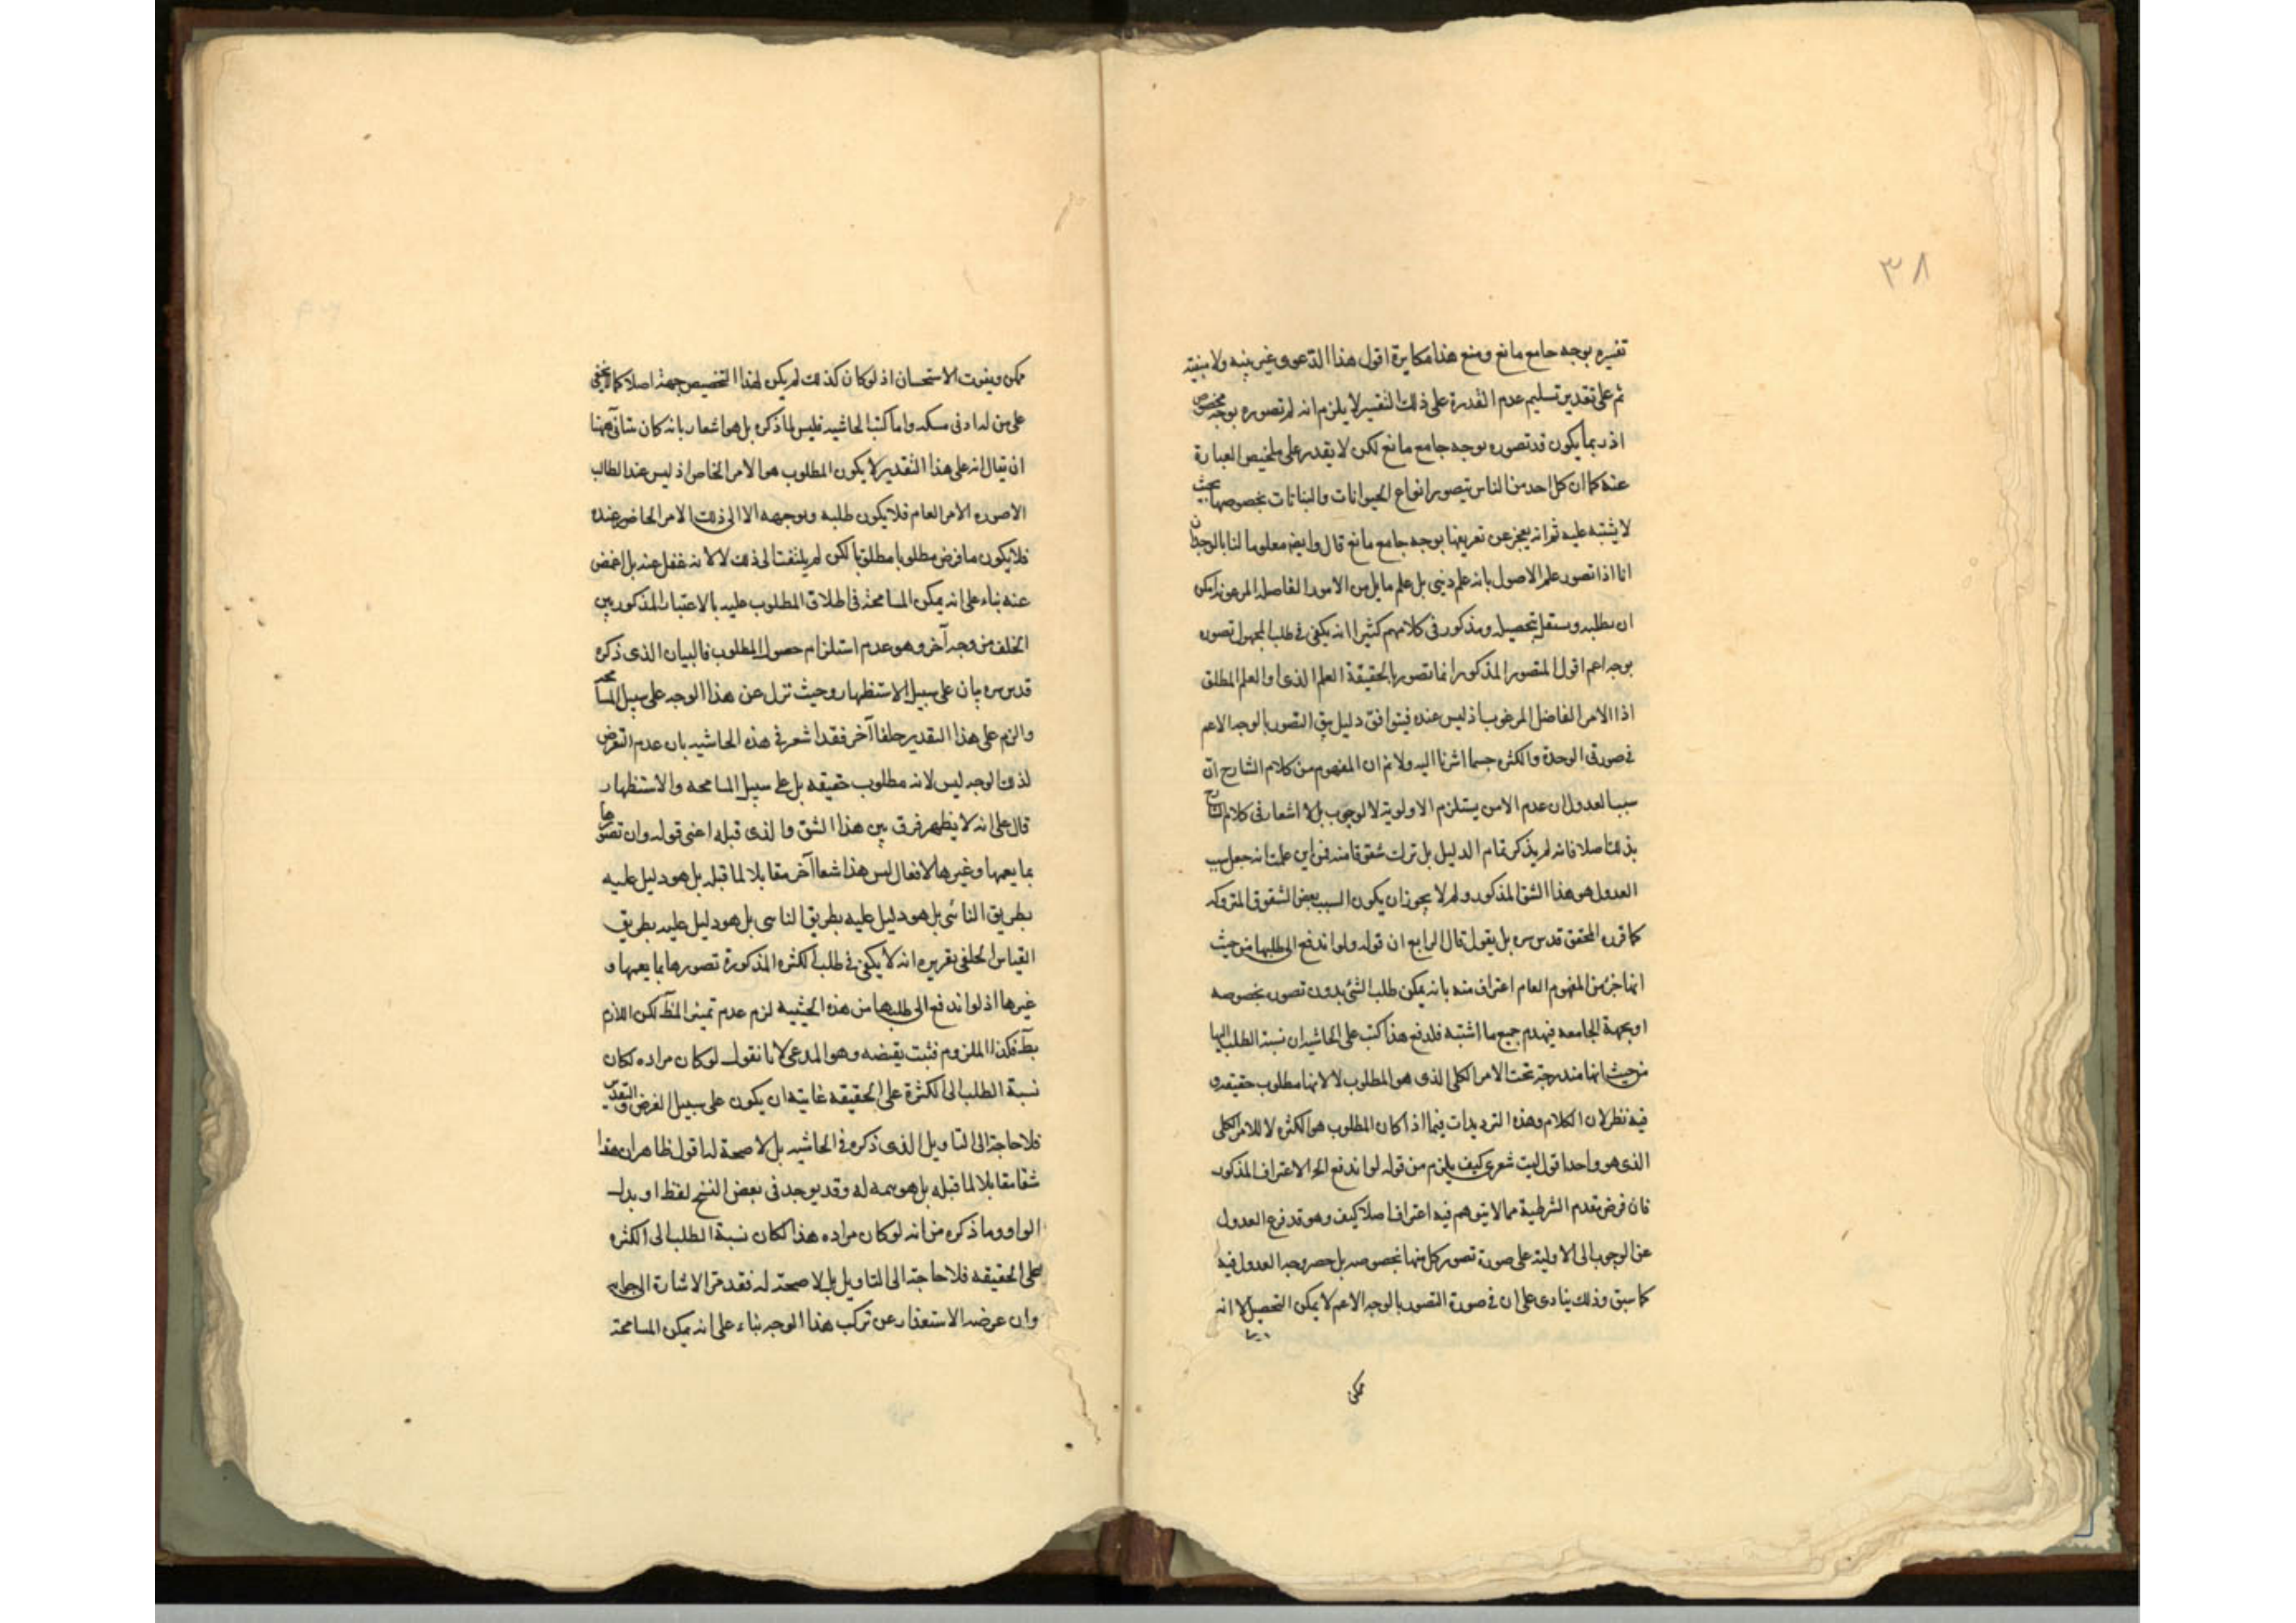 ٣٨
تفسيره بوجه جامع مانع ومنع هذا مكابرة اقول هذا الدعوى غير بينه ولا مبنية
ثم على تقدير تسليم عدم القدرة على ذلك التفسير لا يلزم انه لم تصوره بوجه مخصوص
اذ ربما يكون قد تصوره بوجه جامع مانع لكن لا يقدر على تلخيص العبارة
عنه كما ان كل احد من الناس يتصور انواع الحيوانات والنباتات بخصوصها بحيث
لا يشتبه عليه ثم انه يعجز عن تعريفها بوجه جامع مانع قال وايضا معلوما لنا بالوجدان
انا اذا تصور علم الاصول بانه علم ديني بل علم ما بل من الامور الفاضله المرغوبه يمكن
ان يطلبه ويستقل بتحصيله ومذكور في كلامهم كثيرا انه يكفي في طلب المجهول تصوره
بوجه اعم اقول المتصور المذكور انما تصور بالحقيقة العلم الذى او العلم المطلق
اذا الامر الفاضل المرغوب اذ ليس عنده فيتوافق دليل بقى التصور بالوجه الاعم
في صورتى الوحدة والكثره حسبما اشرنا اليه ولا ثم ان المفهوم من كلام الشارح ان
سبب العدول ان عدم الامن يستلزم الاولوية لا الوجوب بل لا اشعار في كلام الشارح
بذلك اصلا فانه لم يذكر تمام الدليل بل ترك شقوقا منه فمن اين علمت انه جعل سبب
العدول هو هذا الشق المذكور ولم لا يجوز ان يكون السبب بعض الشقوق المتروكه
كما قرره المحقق قدس سره بل يقول قال الرابع ان قوله ولو اندفع الى طلبها من حيث
انها جزئ من المفهوم العام اعتراف منه بانه يمكن طلب الشئ بدون تصوره بخصوصه
او بجهة الجامعه فيهدم جميع ما اشتبه فلدفع هذا كتب على الحاشيه ان نسبة الطلب اليها
من حيث انها مندرجة تحت الامر الكلي الذى هو المطلوب لا لانها مطلوب حقيقه و
فيه نظر لان الكلام وهذه الترديدات فيما اذا كان المطلوب هو الكثره لا للامر الكلى
الذى هو واحد اقول ليت شعرى كيف يلزم من قوله لو اندفع الخ الاعتراف المذكور
فان فرض تقدم الشرطية مما لا يتوهم فيه اعتراف اصلا كيف وهو قد فرع العدول
عن الوجوب الى الاولية على صورة تصور كل منها بخصوصه بل حصر وجه العدول فيه
كما سبق وذلك ينادى على ان في صورة التصور بالوجه الاعم لا يمكن التحصيل لا انه
ممكن
ممكن ويفوت الاستحسان اذ لو كان كذلك لم يكن لهذا التخصيص جهة اصلا كما لا يخفى
على من له ادنى مسكه واما كتب الحاشيه فليس لما ذكره بل هو اشعار بانه كان يتأتى ههنا
ان يقال انه على هذا التقدير لا يكون المطلوب هو الامر الخاص اذ ليس عند الطالب
الا صوره الامر العام فلا يكون طلبه وتوجهه الا الى ذلك الامر الحاضر عنده
فلا يكون ما فرض مطلوبا مطلوبا لكن لم يلتفت الى ذلك لا لانه غفل عنه بل اغمض
عنه بناء على انه يمكن المسامحة في اطلاق المطلوب عليه بالاعتبار المذكور بين
الخلف من وجه آخر وهو عدم استلزام حصول المطلوب فالبيان الذى ذكره
قدس سره بيان على سبيل الاستظهار وحيث تنزل عن هذا الوجه على سبيل المسامحه
والزم على هذا التقدير خلفا آخر فقد اشعر في هذه الحاشيه بان عدم التعرض
لذلك الوجه ليس لانه مطلوب حقيقه بل على سبيل المسامحه والاستظهار
قال على انه لا يظهر فرق بين هذا الشق والذى قبله اعنى قوله وان تصورها
بما يعمها وغيرها لا فعال ليس هذا شقا آخر مقابلا لما قبله بل هو دليل عليه
بطريق الناشى بل هو دليل عليه بطريق الناسى بل هو دليل عليه بطريق
القياس الخلفي تقريره انه لا يكفى في طلب الكثره المذكورة تصورها بما يعمها و
غيرها اذ لو اندفع الى طلبها من هذه الحيثيه لزم عدم تميز المط لكن اللازم
بط فكذا الملزوم فثبت نقيضه وهو المدعى لا ما نقول لو كان مراده لكان
نسبة الطلب الى الكثرة على الحقيقه غايته ان يكون على سبيل الفرض والتقدير
فلا حاجة الى التاويل الذى ذكره في الحاشيه بل لا صحة له اقول ظاهر ان هذا
شقا مقابلا لما قبله بل هو تتمه له وقد يوجد في بعض النسخ لفظ او بدل
الواو وما ذكره من انه لو كان مراده هذا لكان نسبة الطلب الى الكثره
على الحقيقه فلا حاجة الى التاويل بل لا صحة له فقد مر الاشارة الى جوابه
وان عرضه الاستعذار عن تركب هذا الوجه بناء على انه يمكن المسامحة